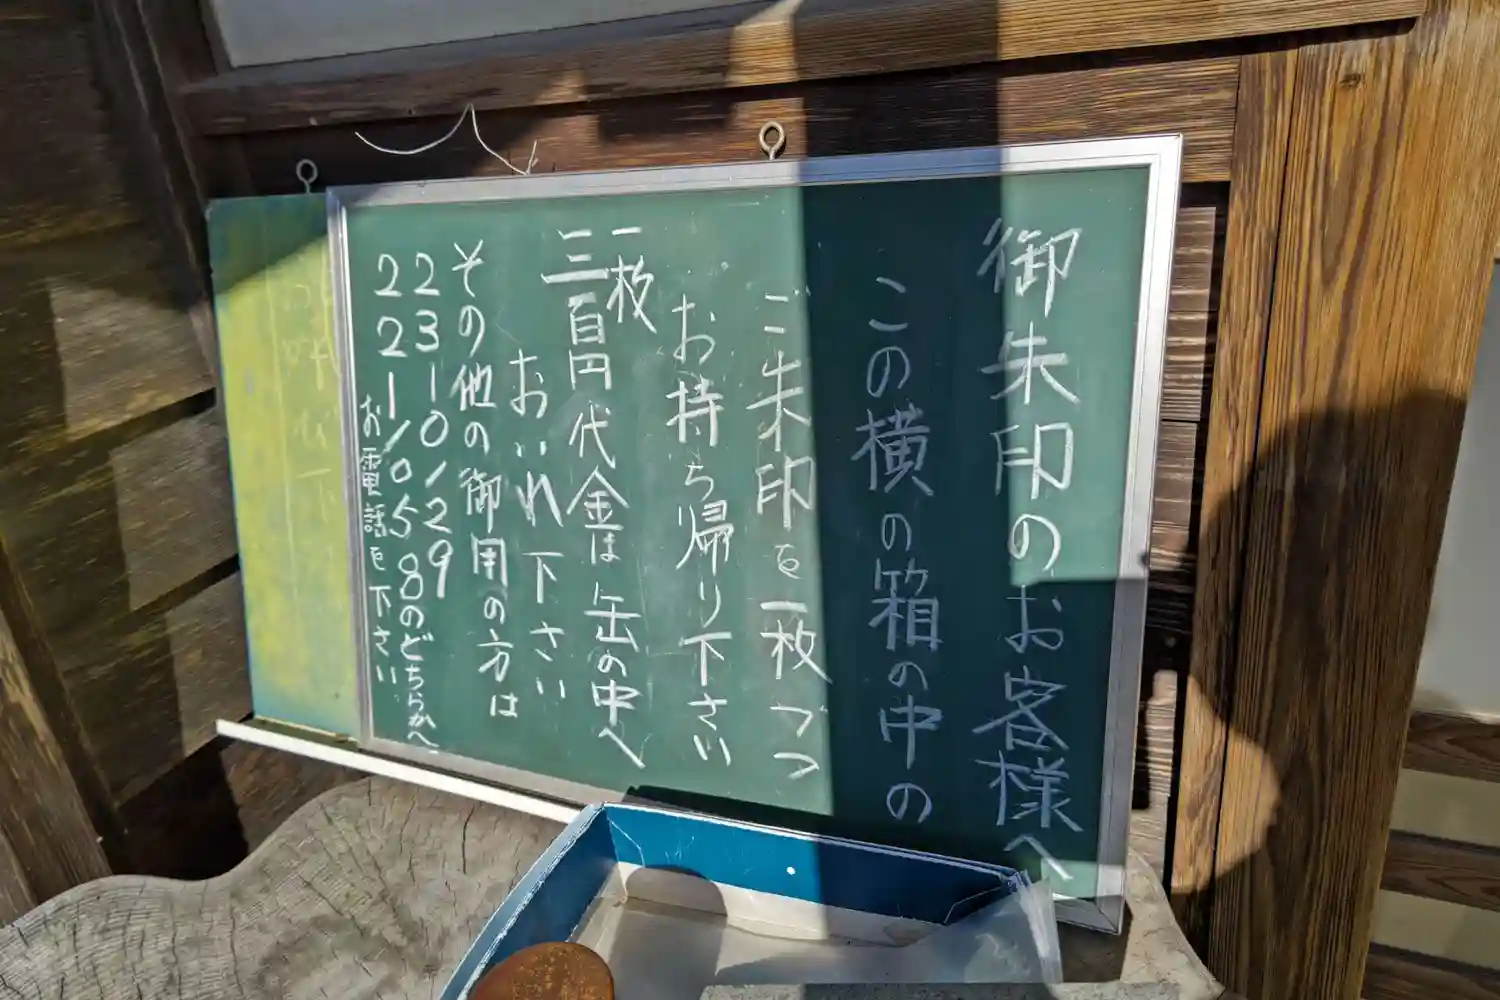 御朱印のお客様へ
この横の箱の中の
ご朱印を一枚づつ
お持ち帰り下さい
一枚
三百円代金は缶の中へ
おいれ下さい
その他の御用の方は
23-10129
221-1058のどちらかへ
お電話を下さい